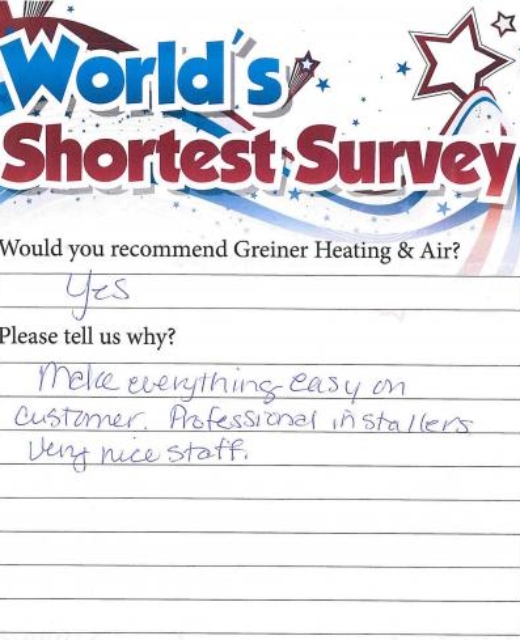 World's
Shortest Survey
Would you recommend Greiner Heating & Air?
Yes
Please tell us why?
Make everything easy on
customer. Professional installers
Very nice staff.